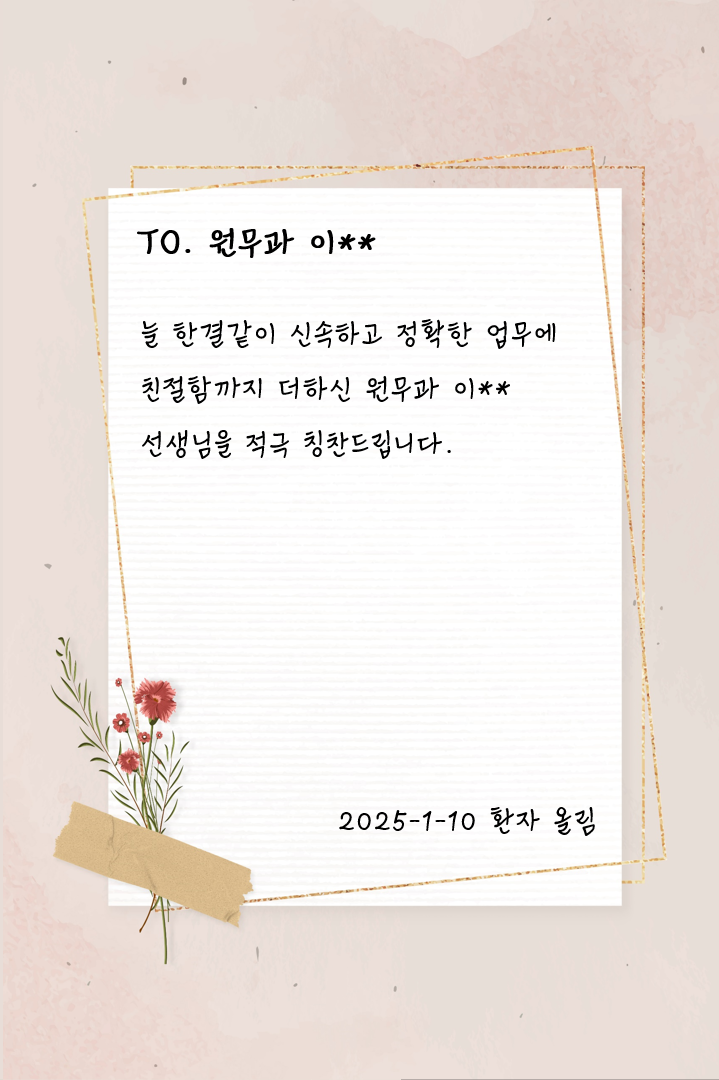 TO. 원무과 이**
늘 한결같이 신속하고 정확한 업무에
친절함까지 더하신 원무과 이**
선생님을 적극 칭찬드립니다.
2025-1-10 환자 올림